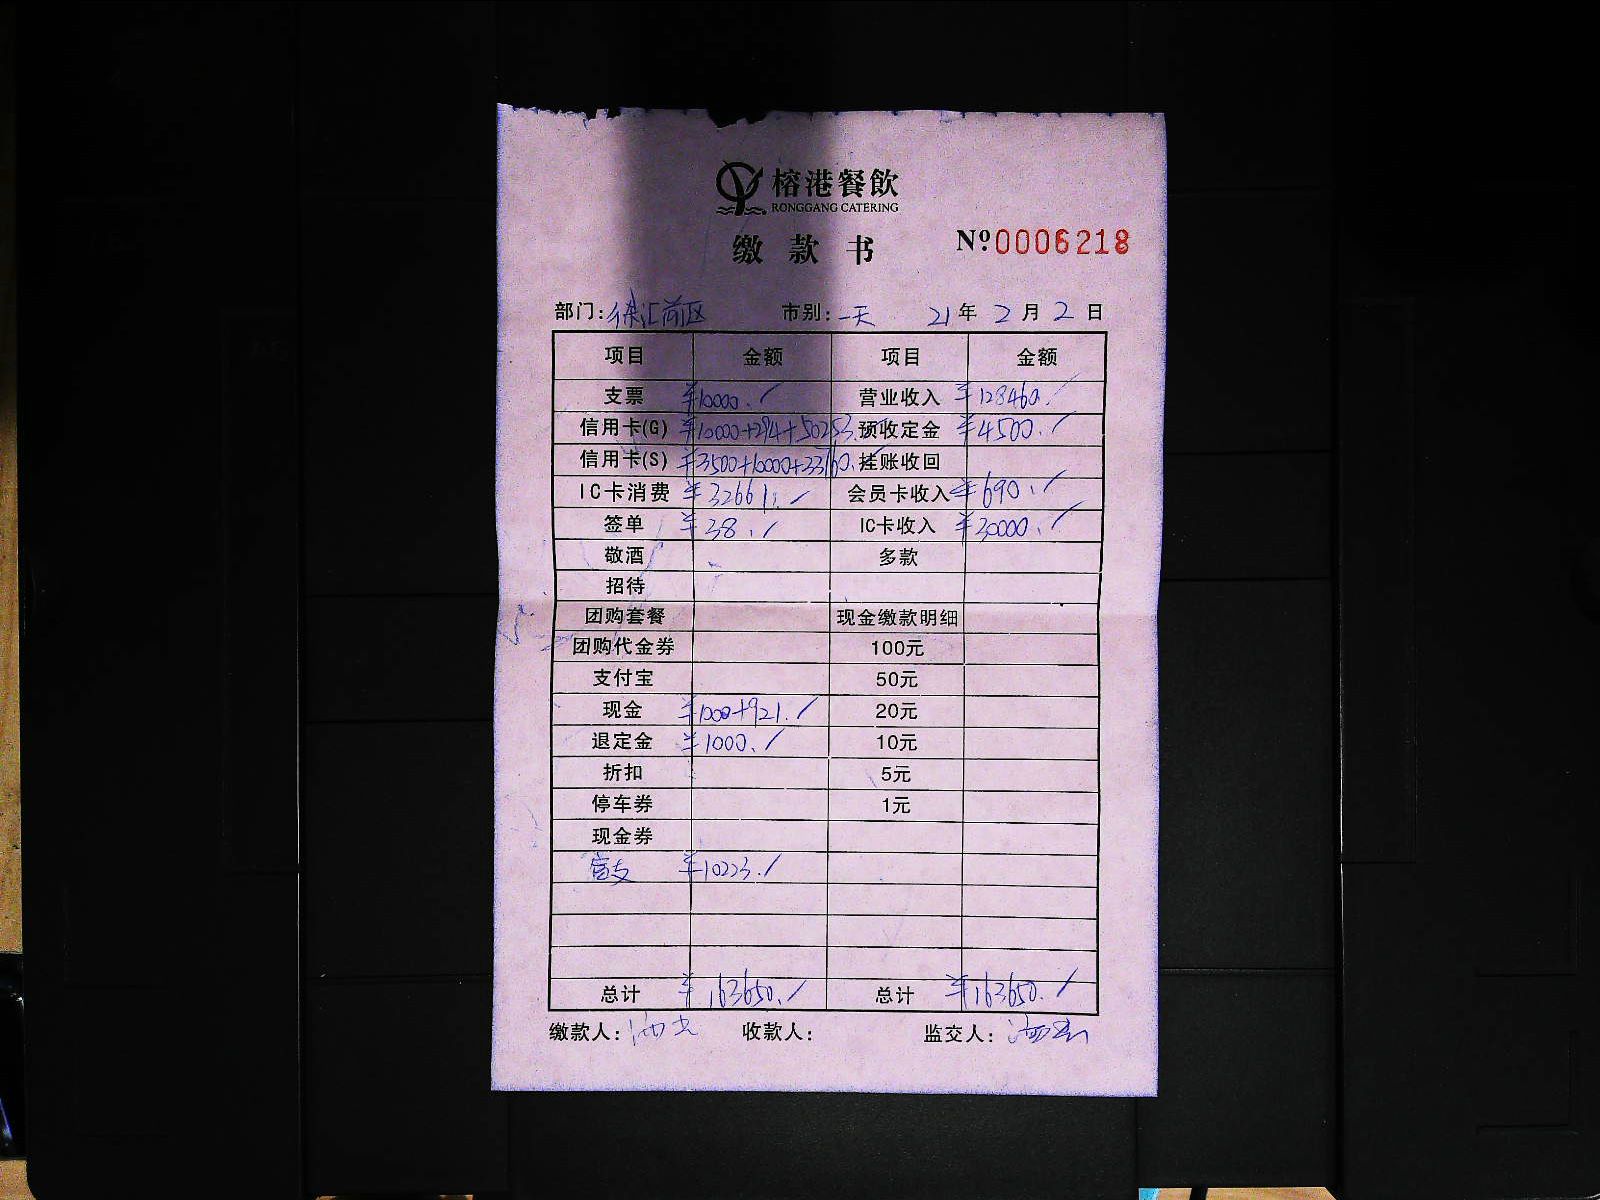 榕港餐飲
RONGGANG CATERING
缴款书 Nº0006218
部门:徐汇前区 市别:一天 21年2月2日
项目 金额 项目 金额
支票 ¥10000. 营业收入 ¥128460.
信用卡(G) ¥10000+294+50253. 预收定金 ¥4500.
信用卡(S) ¥3500+10000+33760. 挂账收回
IC卡消费 ¥32661. 会员卡收入 ¥690.
签单 ¥38. IC卡收入 ¥30000.
敬酒 多款
招待
团购套餐 现金缴款明细
团购代金券 100元
支付宝 50元
现金 ¥1000+921. 20元
退定金 ¥1000. 10元
折扣 5元
停车券 1元
现金券
¥10223.
总计 ¥163650. 总计 ¥163650.
缴款人: 收款人: 监交人: